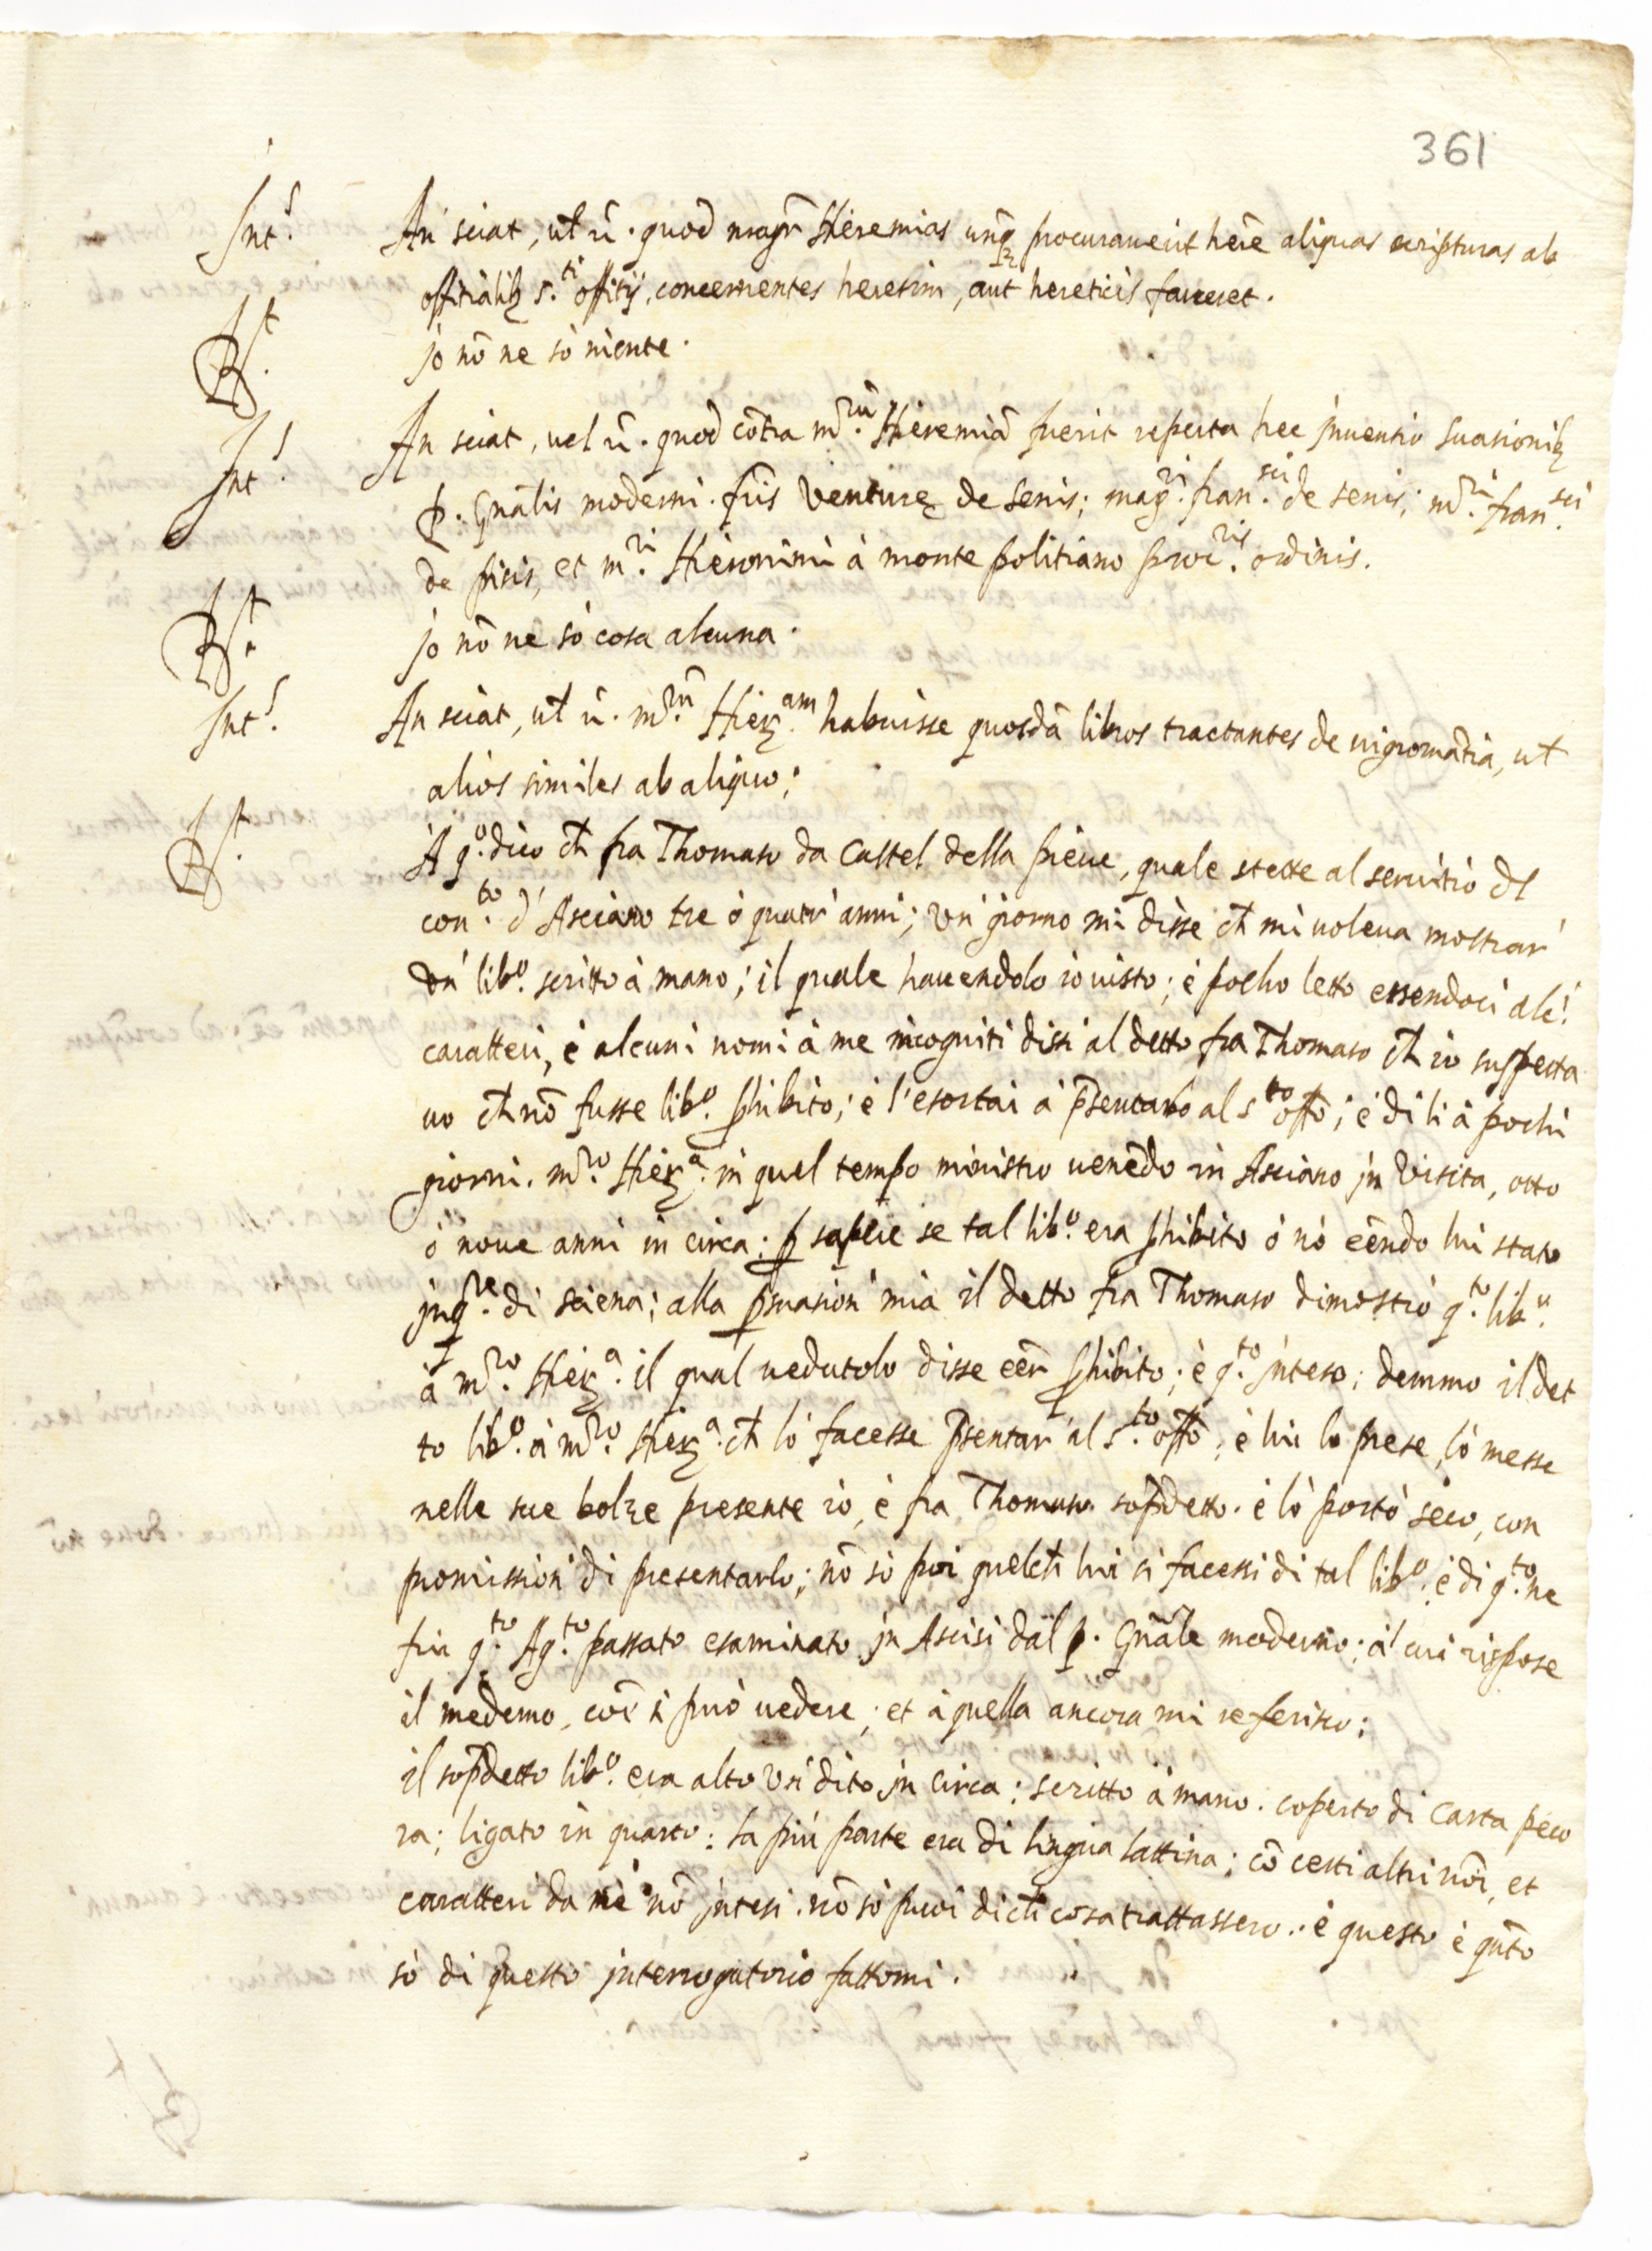 361
Int.s An' sciat, ut̃ ũ. quod mag.r Hieremias unq̃ procurauerit hẽre aliquas scripturas ab
offitialibꝫ s.ti offitij, concernentes heresim, aut hereticis faueret.
R.t jo nõ ne sò niente.
Int.s An sciat, uel ũ. quod cõtra m.rum Hieremiã fuerit reperta hec inuentio suasionibꝫ
P. Gñalis moderni. fr̃is Venturę de Senis; mag.ri fran.sci de senis; m.ri fran.sci
de pisis, et m.ri Hieronimi à monte politiano proc.ris ordinis.
R.t jo nõ ne sò cosa alcuna.
Int.s An sciat, ut̃ ũ. m.rum Hier.am habuisse quosdã libros tractantes de nigromãtia, ut̃
alios similes ab aliquo;
R.t A q.o dico ch̃ fra Thomaso da Castel della pieue, quale stette al seruitio dl
con.to d'Asciano tre ò quatr' anni; Vn' giorno mi disse ch̃ mi uoleua mostrar'
Vn' lib.o scritto à mano; il quale hauendolo io uisto; è pocho letto essendoci alc.i
caratteri, è alcuni nomi à me incogniti dissi al detto fra Thomaso ch̃ io suspetta
uo ch̃ nõ fusse lib.o ꝓhibito; è l'esortai à p̃sentarlo al s.to offõ; è di li à pochi
giorni. m.ro Hier.a in quel tempo ministro uenẽdo in Asciano in Visita, otto
ò noue anni in circa: ꝑ sapere se tal lib.o era ꝓhibito ò nò eẽndo lui stato
inq.re di Sciena; alla ꝑsuasion' mia il detto fra Thomaso dimostrò q.to lib.o
à m.ro Hier.a il qual uedutolo disse eẽr ꝓhibito; è q.to inteso; demmo il det
to lib.o à m.ro Hier.a ch̃ lò facesse p̃sentar' al s.to offõ, è lui lo prese, lò messe
nelle sue bolze presente io, è fra Thomaso sop̃detto. è lò portò seco, con
promission' di presentarlo; nõ sò poi quelch̃ lui si facessi di tal lib.o; è di q.to ne
fui q.to Ag.to passato esaminato in Ascisi dal p. Gñale moderno; à cui risposi
il medemo, coẽ si può uedere; et à quella ancora mi referisco;
il sop̃detto lib.o era alto Vn' dito in circa: scritto à mano. coperto di Carta peco
ra; ligato in quarto: la più parte era di lingua lattina; cõ certi altri nõi, et
caratteri da mè nõ intesi. nõ sò puoi di ch̃ cosa trattassero.. è questo è quãto
sò di questo interrogatorio fattomi.